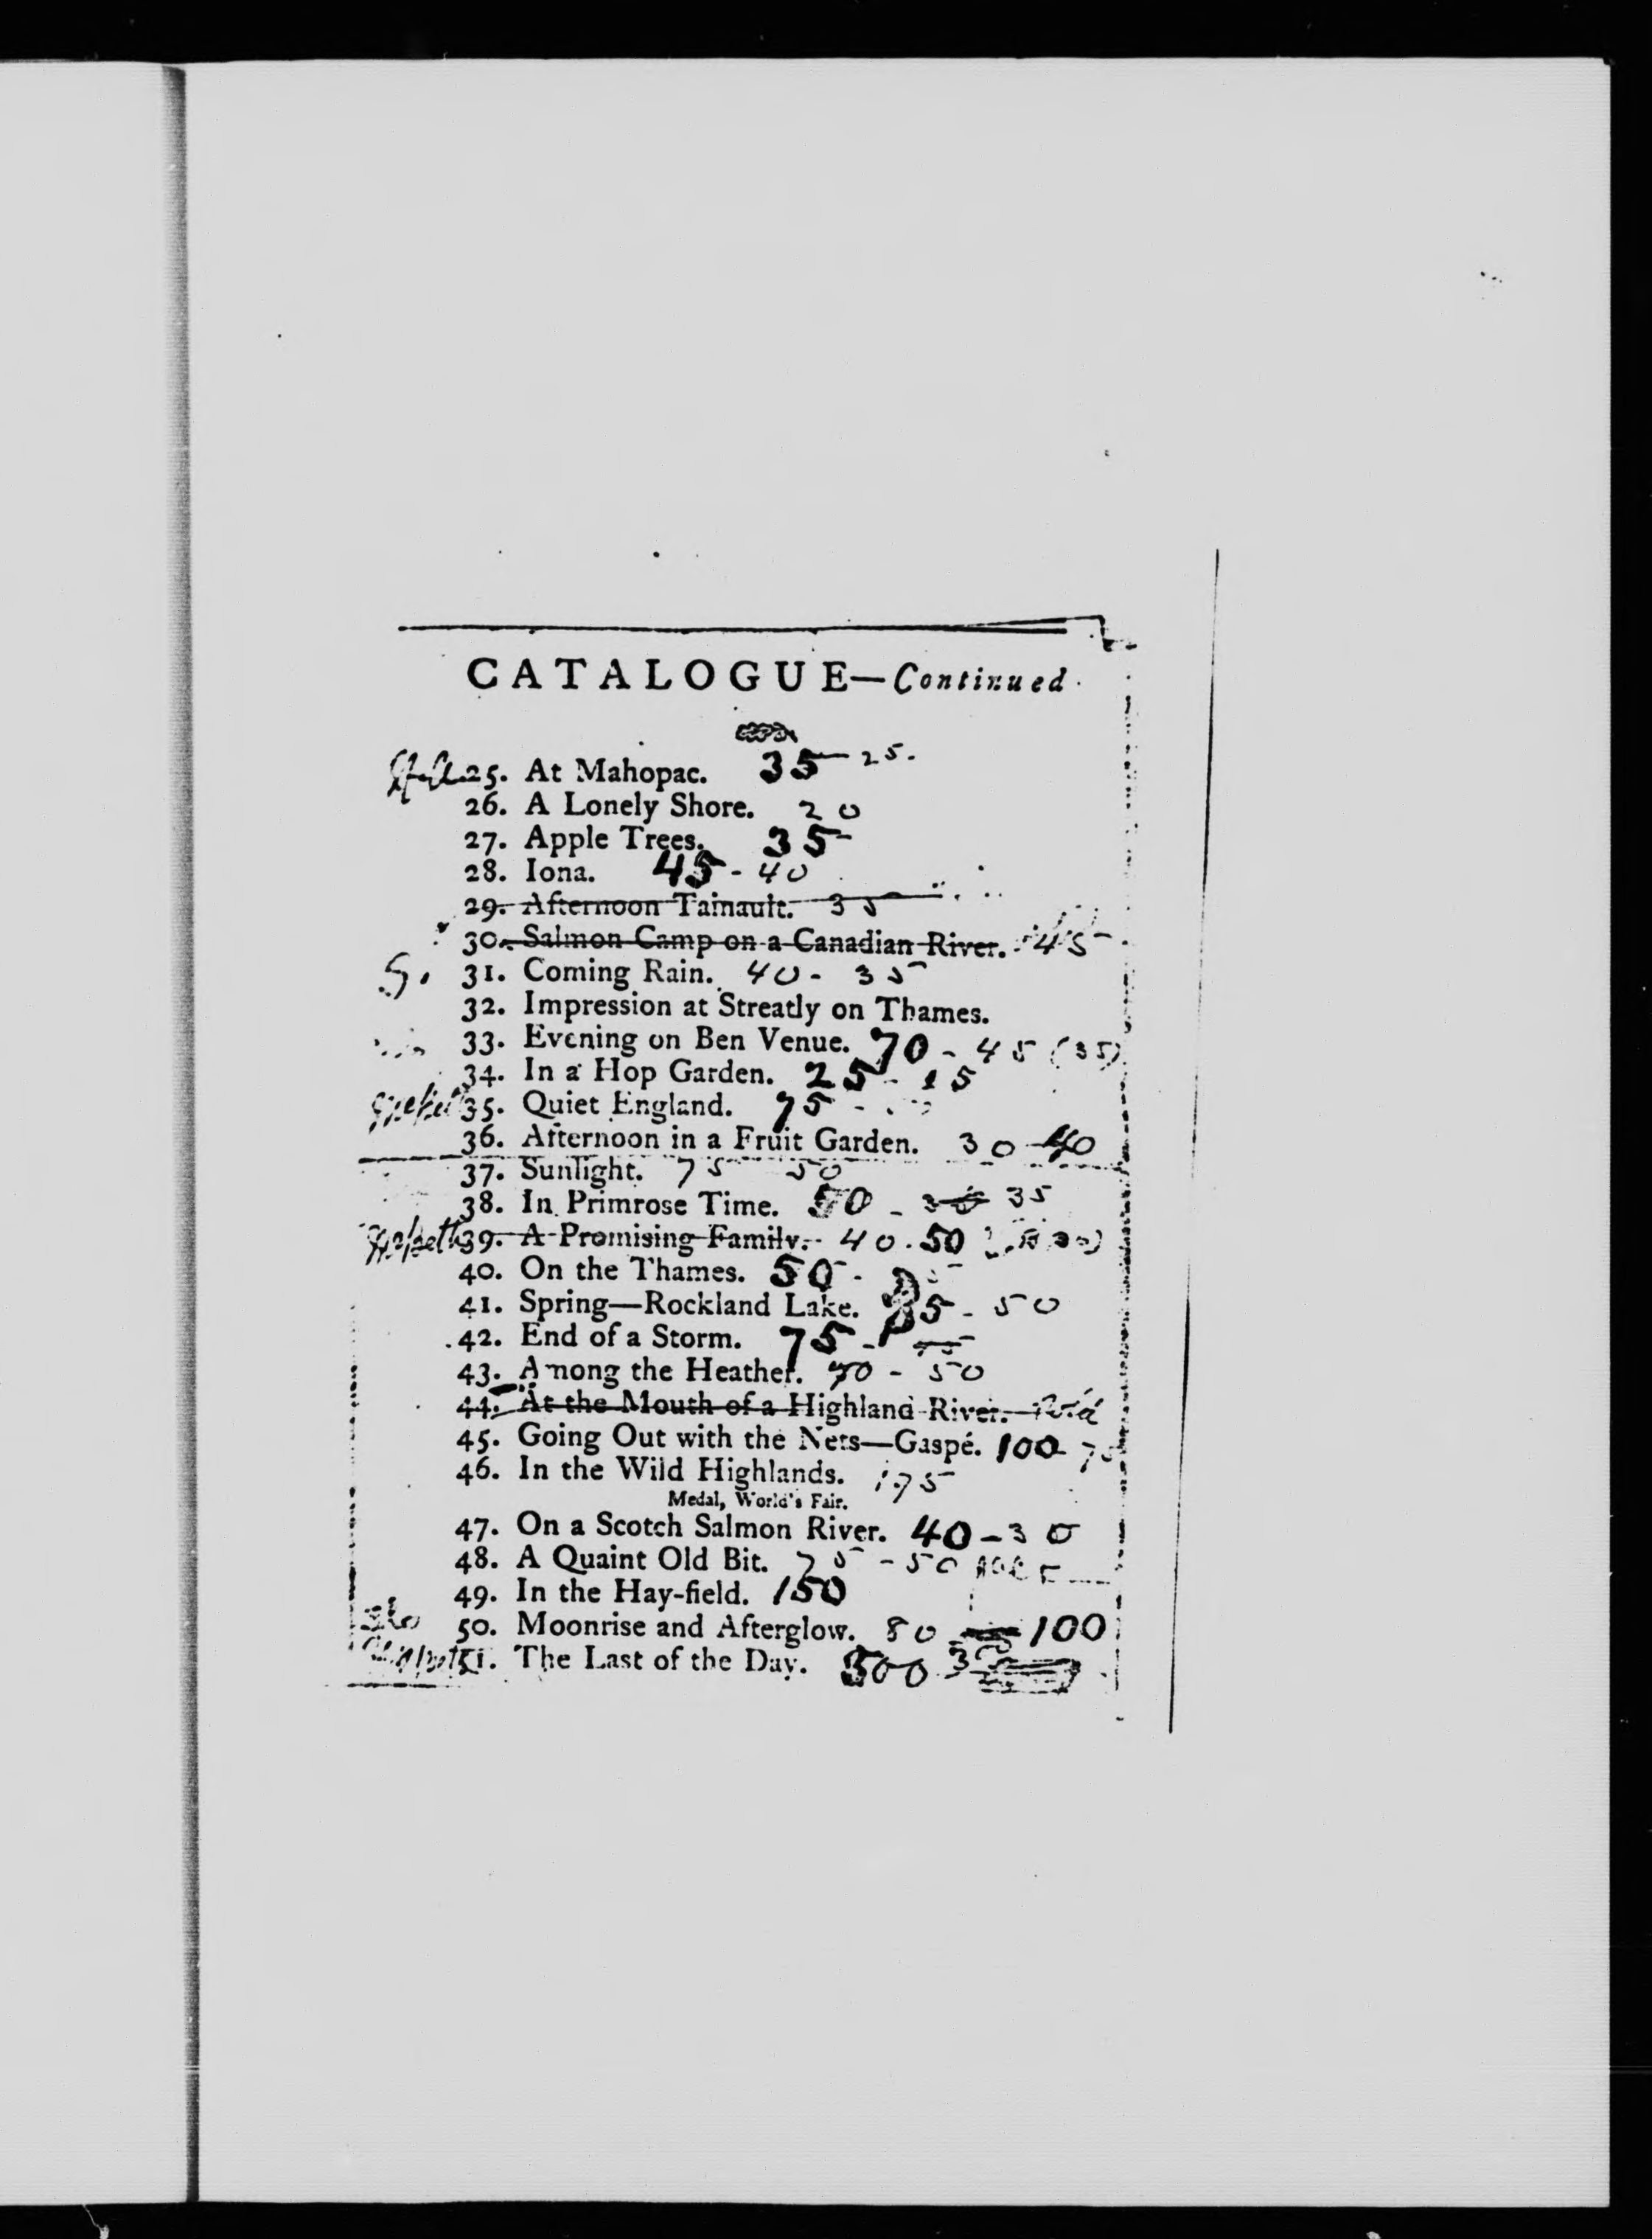 CATALOGUE—Continued
25. At Mahopac. 35 25.
26. A Lonely Shore. 20
27. Apple Trees. 35-
28. Iona. 45 - 40
29. Afternoon Tainault. 35
30. Salmon Camp on a Canadian River. 45
S. 31. Coming Rain. 40 - 35
32. Impression at Streatly on Thames.
33. Evening on Ben Venue. 70 - 45 (35)
34. In a Hop Garden. 25 - 15
35. Quiet England. 75 -
36. Afternoon in a Fruit Garden. 30 40
37. Sunlight. 75 50
38. In Primrose Time. 50 - 35
39. A Promising Family. 40. 50
40. On the Thames. 50 -
41. Spring—Rockland Lake. 85 - 50
42. End of a Storm. 75 -
43. Among the Heather. 70 - 50
44. At the Mouth of a Highland River.
45. Going Out with the Nets—Gaspé. 100
46. In the Wild Highlands. 175
Medal, World's Fair.
47. On a Scotch Salmon River. 40 - 30
48. A Quaint Old Bit. 75 - 50
49. In the Hay-field. 150
50. Moonrise and Afterglow. 80 100
51. The Last of the Day. 500